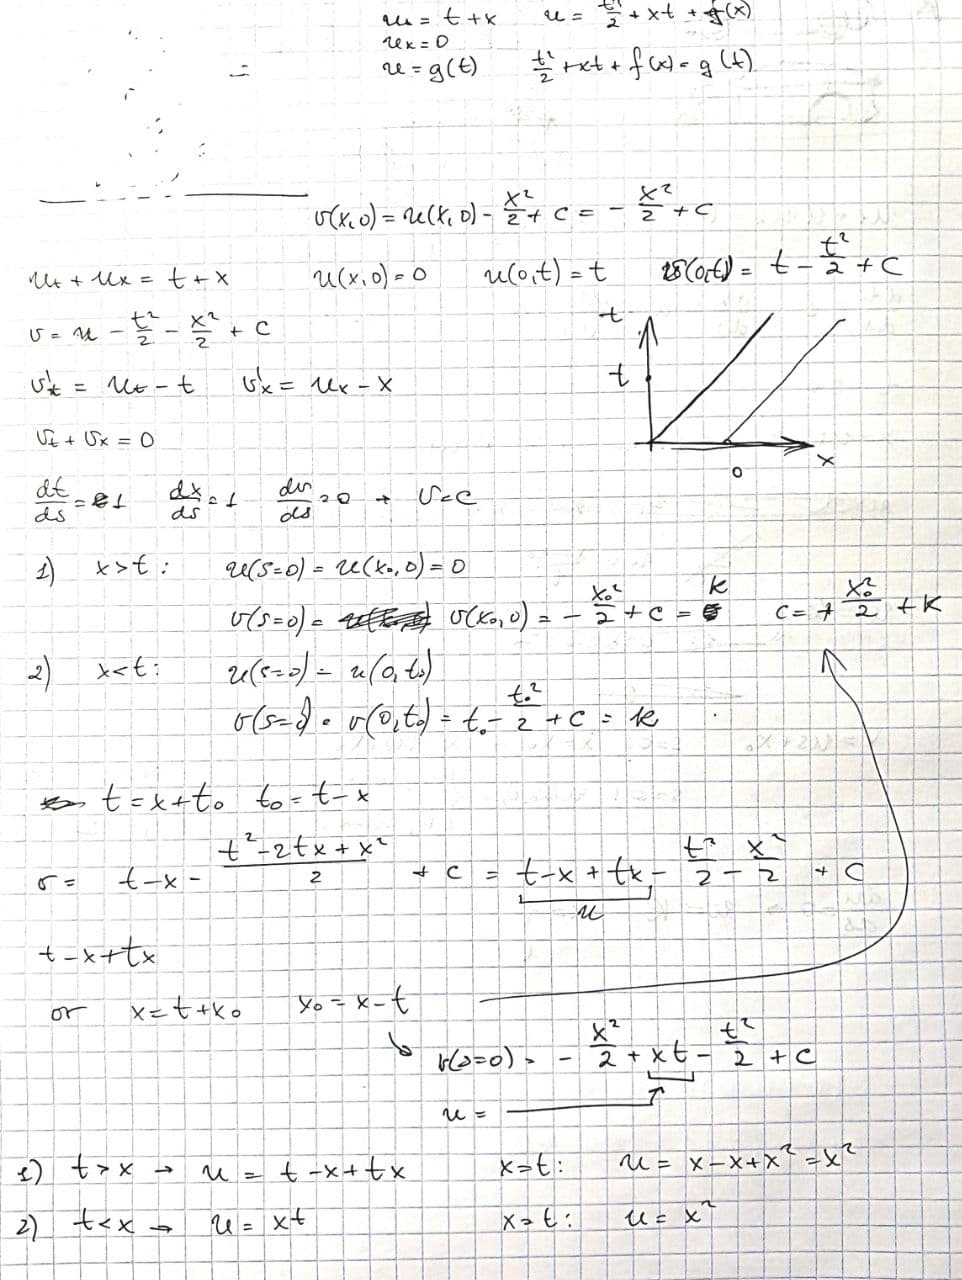 u_t = t + x    u = t²/2 + xt + f(x)
u_x = 0
u = g(t)    t²/2 + xt + f(x) = g(t)
v(x,0) = u(x,0) - x²/2 + c = - x²/2 + c
u_t + u_x = t + x    u(x,0) = 0    u(0,t) = t    v(0,t) = t - t²/2 + c
v = u - t²/2 - x²/2 + c
t
t
v'_t = u_t - t    v'_x = u_x - x
v_t + v_x = 0
x
0
dt/ds = 1    dx/ds = 1    dv/ds = 0 → v = c
1) x > t :    u(s=0) = u(x₀, 0) = 0
v(s=0) = v(x₀, 0) = - x₀²/2 + c = k    c = + x₀²/2 + k
2) x < t :    u(s=0) = u(0, t₀)
v(s=0) = v(0, t₀) = t₀ - t₀²/2 + c = k
t = x + t₀    t₀ = t - x
v = t - x - (t² - 2tx + x²)/2 + c = t - x + tx - t²/2 - x²/2 + c
u
t - x + tx
or    x = t + x₀    x₀ = x - t
v(s=0) = - x²/2 + xt - t²/2 + c
u =
1) t > x → u = t - x + tx    x = t :    u = x - x + x² = x²
2) t < x → u = xt    x = t :    u = x²